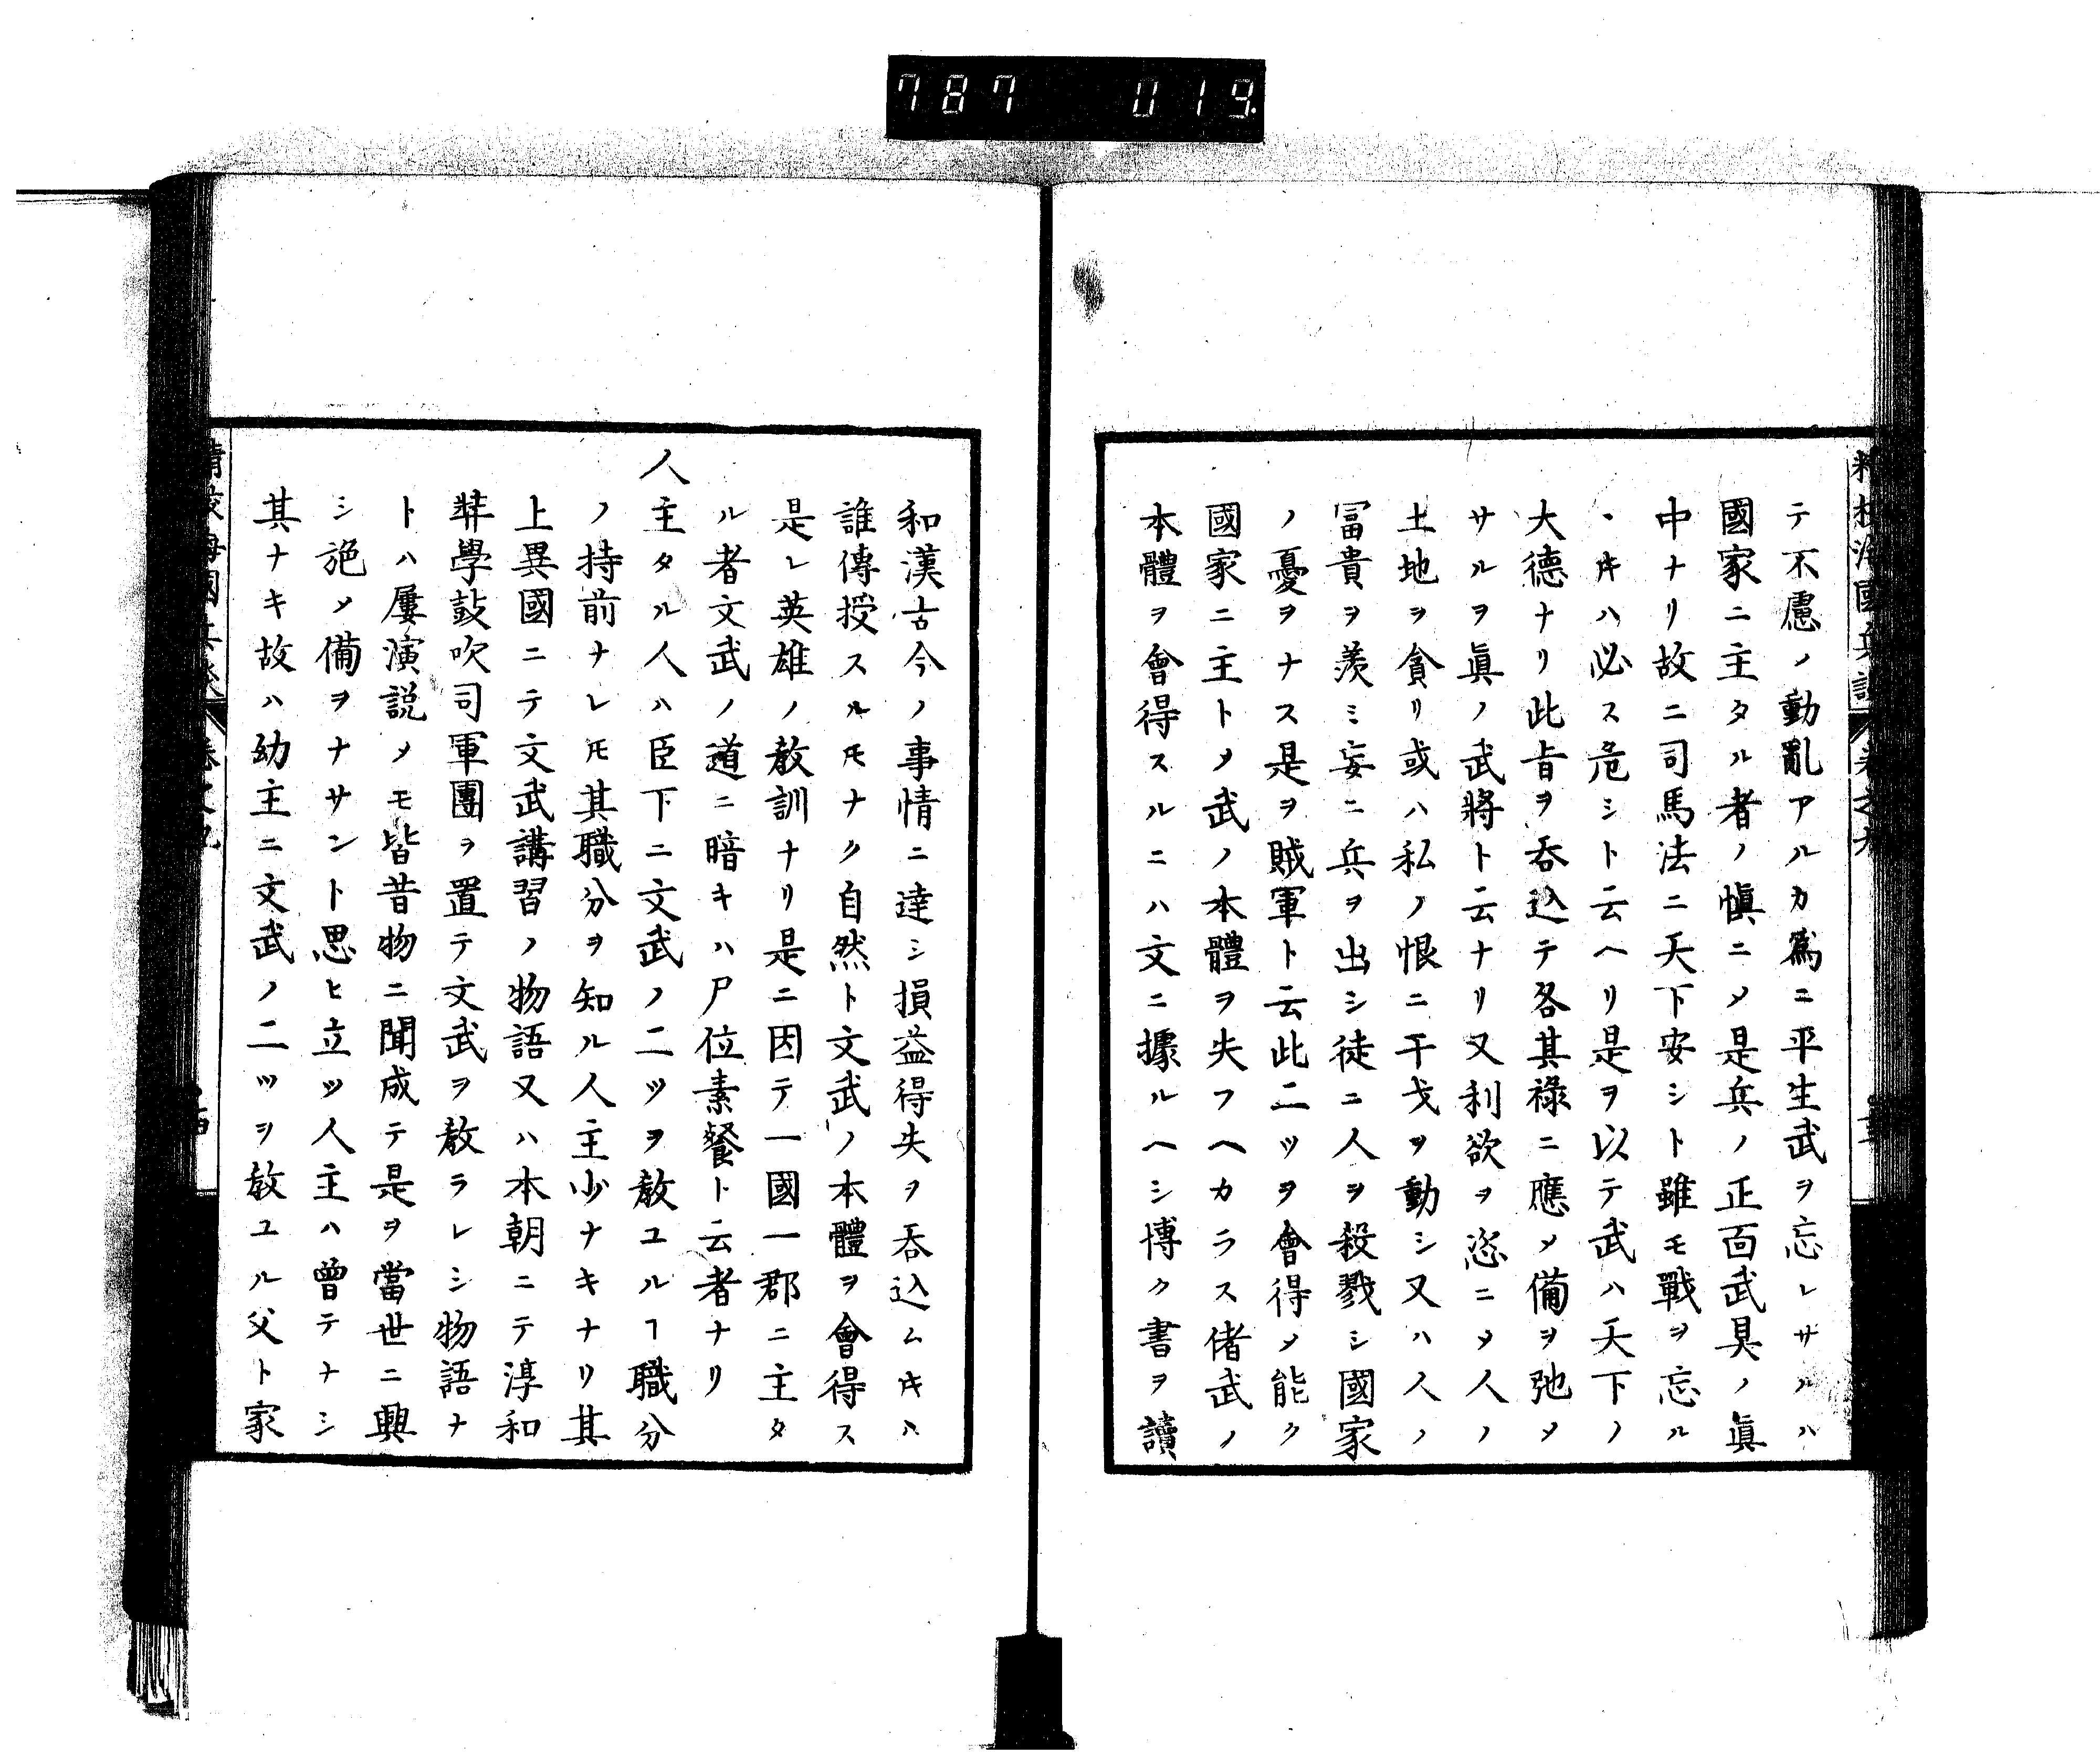 787 019
テ不慮ノ動亂アルカ爲ニ平生武ヲ忘レサルハ
國家ニ主タル者ノ愼ニメ是兵ノ正面武具ノ眞
中ナリ故ニ司馬法ニ天下安シト雖モ戰ヲ忘ル
キハ必ス危シト云ヘリ是ヲ以テ武ハ天下ノ
大德ナリ此旨ヲ呑込テ各其祿ニ應メ備ヲ弛メ
サルヲ眞ノ武將ト云ナリ又利欲ヲ恣ニメ人ノ
土地ヲ貪リ或ハ私ノ恨ニ干戈ヲ動シ又ハ人ノ
冨貴ヲ羨ミ妄ニ兵ヲ出シ徒ニ人ヲ殺戮シ國家
ノ憂ヲナス是ヲ賊軍ト云此二ツヲ會得メ能ク
國家ニ主トメ武ノ本體ヲ失フヘカラス偖武ノ
本體ヲ會得スルニハ文ニ據ルヘシ博ク書ヲ讀
和漢古今ノ事情ニ達シ損益得失ヲ呑込ムキハ
誰傳授スルモナク自然ト文武ノ本體ヲ會得ス
是レ英雄ノ敎訓ナリ是ニ因テ一國一郡ニ主タ
ル者文武ノ道ニ暗キハ尸位素餐ト云者ナリ
人主タル人ハ臣下ニ文武ノ二ツヲ敎ユルヿ職分
ノ持前ナレ𪜈其職分ヲ知ル人主少ナキナリ其
上異國ニテ文武講習ノ物語又ハ本朝ニテ淳和
弉學鼓吹司軍團ヲ置テ文武ヲ敎ラレシ物語ナ
トハ屢演説メモ皆昔物ニ聞成テ是ヲ當世ニ興
シ施メ備ヲナサント思ヒ立ツ人主ハ曾テナシ
其ナキ故ハ幼主ニ文武ノ二ツヲ敎ユル父ト家